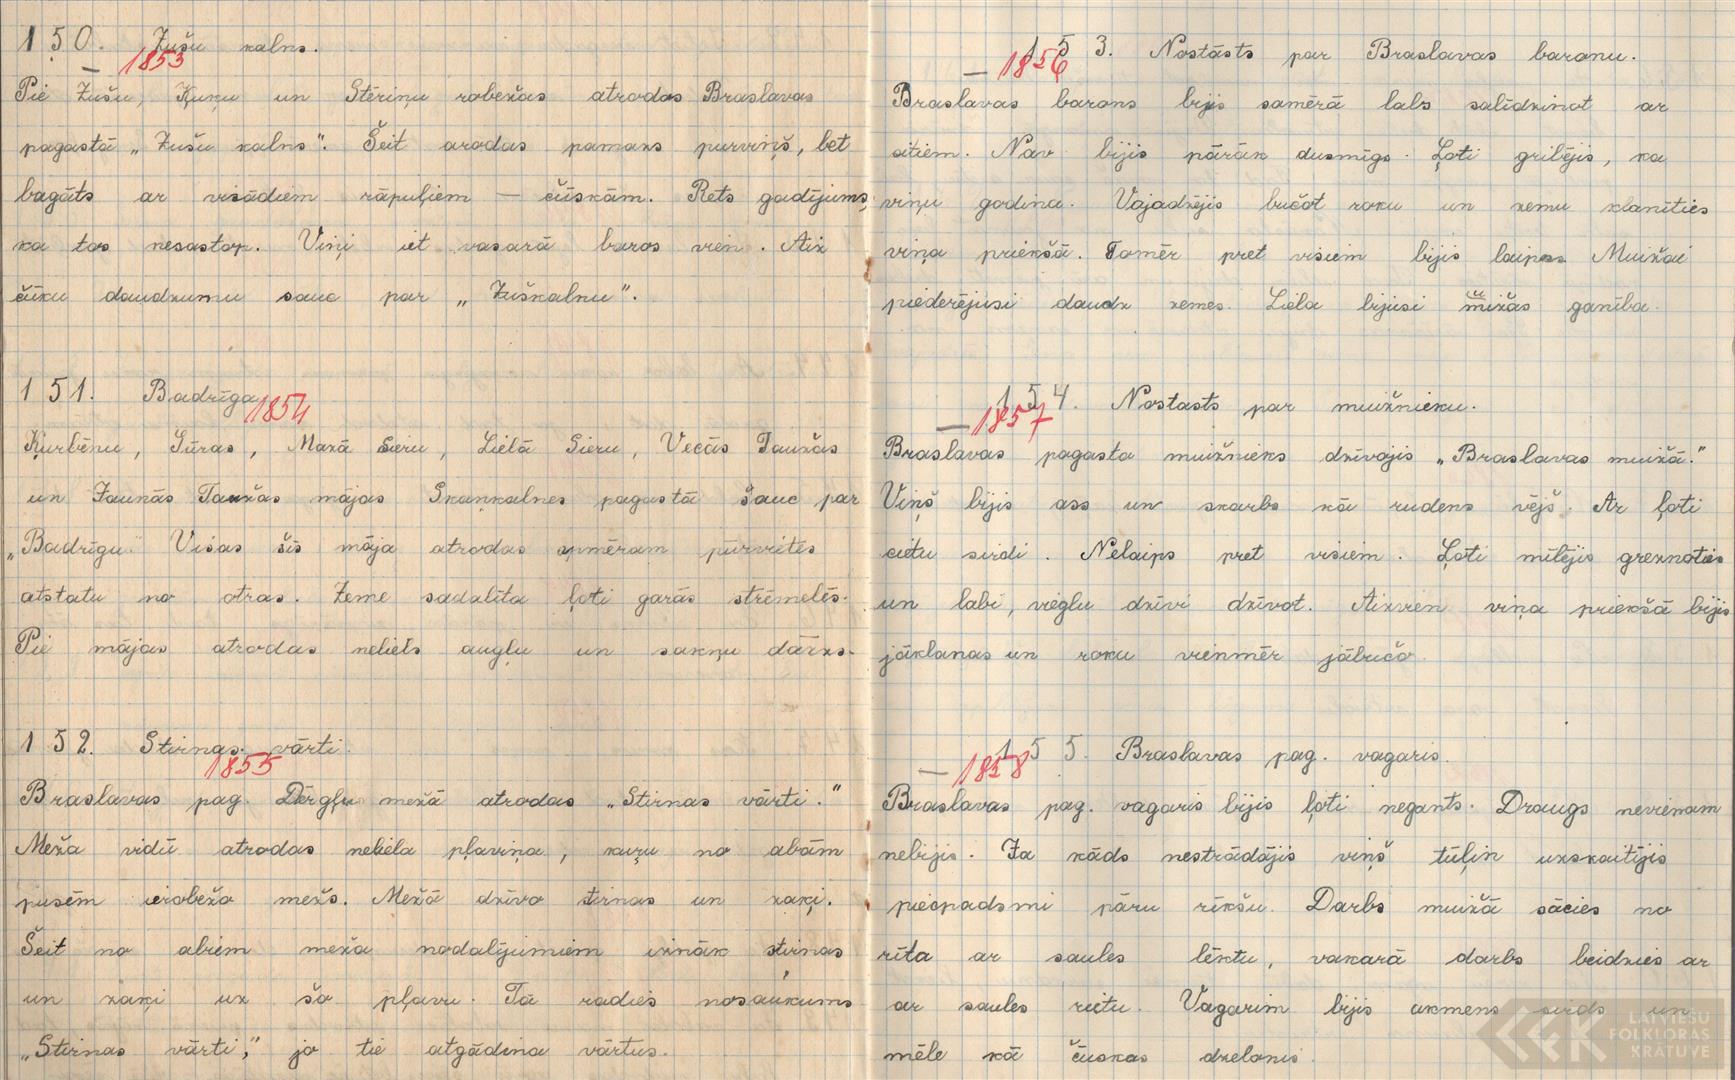 150. Zušu kalns.
1853
Pie Zušu, Ķuņu un Stēriņu robežas atrodas Braslavas
pagastā „Zušu kalns". Šeit arodas pamazs purviņš, bet
bagāts ar visādiem rāpuļiem — čūskām. Rets gadījums,
ka tos nesastop. Viņi iet vasarā baros vien. Aiz
čūku daudzumu sauc par „Zuškalnu".
151. Badrīga
1854
Ķurbēnu, Gūras, Mazā Sieru, Lielā Sieru, Vecās Taužas
un Jaunās Taužas mājas Skaņkalnes pagastā sauc par
„Badrīgu." Visas šīs māja atrodas apmēram pūrvietes
atstatu no otras. Zeme sadalīta ļoti garās strēmelēs.
Pie mājas atrodas neliels augļu un sakņu dārzs.
152. Stirnas vārti.
1855
Braslavas pag. Dērgļu mežā atrodas „Stirnas vārti."
Meža vidū atrodas neliela pļaviņa, kuŗu no abām
pusēm ierobežo mežs. Mežā dzīvo stirnas un zaķi.
Šeit no abiem meža nodalījumiem iznāk stirnas
un zaķi uz šo pļavu. Tā radies nosaukums
„Stirnas vārti," jo tie atgādina vārtus.
153. Nostāsts par Braslavas baronu.
— 1856
Braslavas barons bijis samērā labs salīdzinot ar
citiem. Nav bijis pārāk dusmīgs. Ļoti gribējis, ka
viņu godina. Vajadzējis bučot roku un zemu klanīties
viņa priekšā. Tomēr pret visiem bijis laipns Muižai
piederējusi daudz zemes. Liela bijusi muižas ganība.
154. Nostasts par muižnieku.
— 1857
Braslavas pagasta muižnieks dzīvojis „Braslavas muižā."
Viņš bijis ass un skarbs kā rudens vējš. Ar ļoti
cietu sirdi. Nelaips pret visiem. Ļoti mīlējis greznoties
un labi, vieglu dzīvi dzīvot. Aizvien viņa priekšā bijis
jāklanas un roku vienmēr jābučo.
155. Braslavas pag. vagaris.
— 1858
Braslavas pag. vagaris bijis ļoti negants. Draugs nevienam
nebijis. Ja kāds nestrādājis viņš tūliņ uzskaitījis
piecpadsmi pāru rīkšu. Darbs muižā sācies no
rīta ar saules lēktu, vakarā darbs beidzies ar
ar saules rietu. Vagarim bijis akmens sirds un
mēle kā čūskas dzelonis.
LATVIEŠU
FOLKLORAS
KRĀTUVE